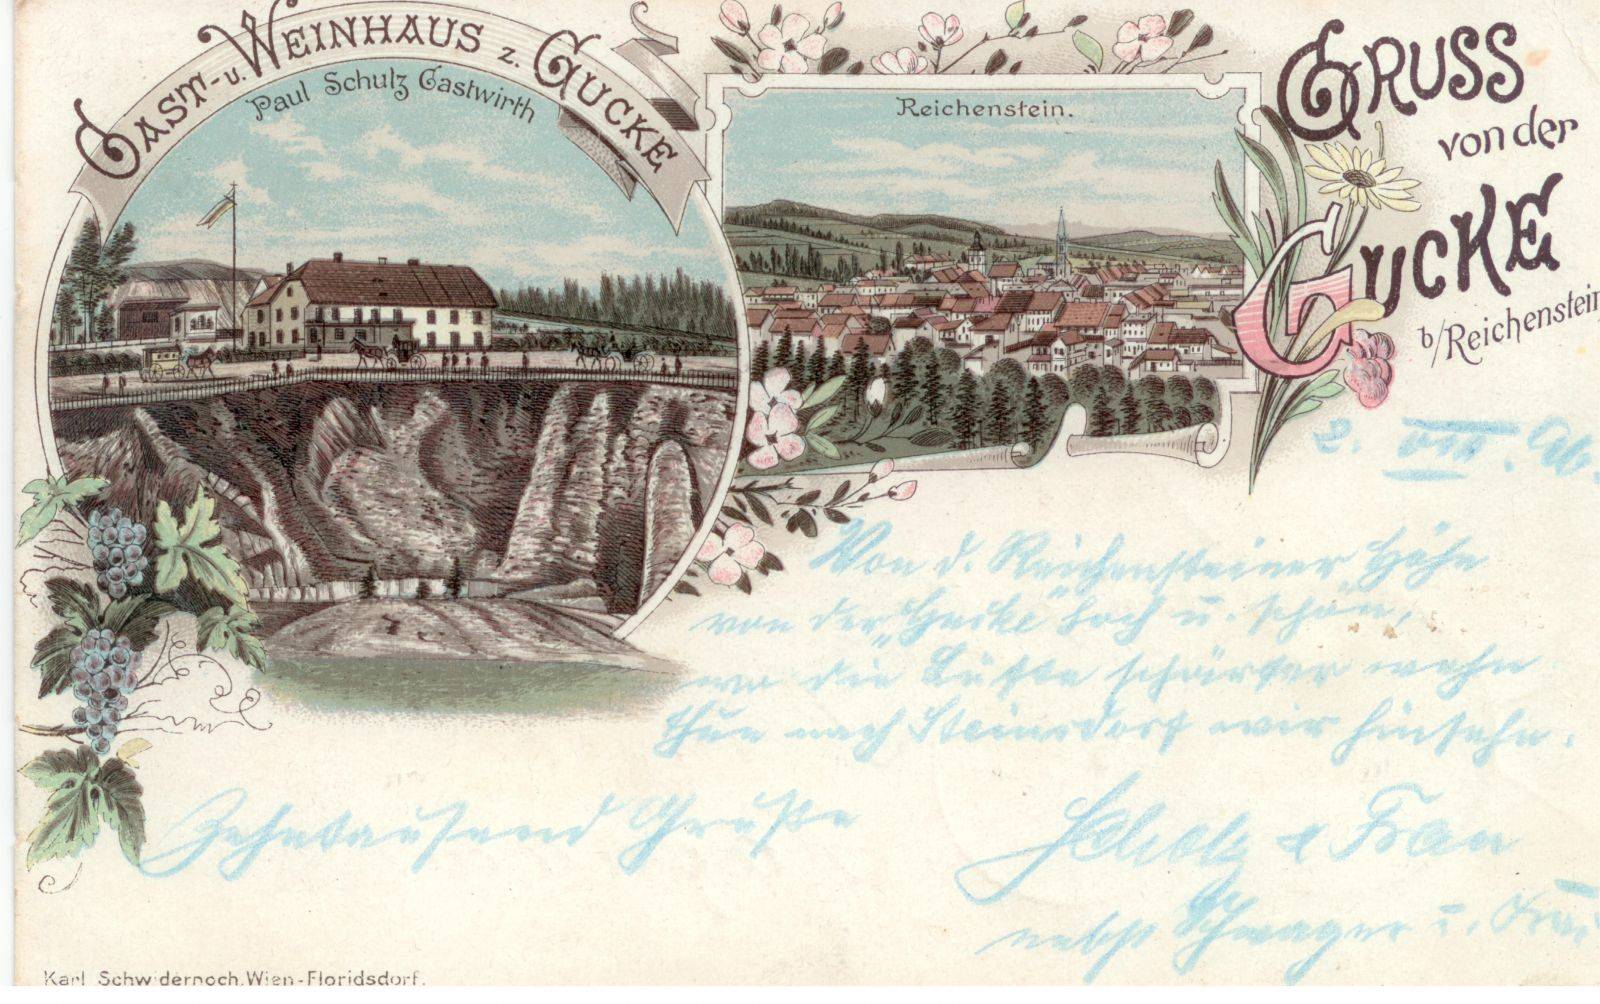 GAST- u. WEINHAUS z. GUCKE
Paul Schulz Gastwirth
Reichenstein.
GRUSS
von der
GUCKE
b/Reichenstein
2. VIII.
Von d. Reichensteiner Höhe
von der "Gucke" hoch u. schön,
wo die Lüfte schärfer wehn
nach Steinsdorf wir hinsehn.
Zehntausend Grüße
Scholz & Frau
nebst Schwager u. Frau
Karl Schwidernoch, Wien-Floridsdorf.